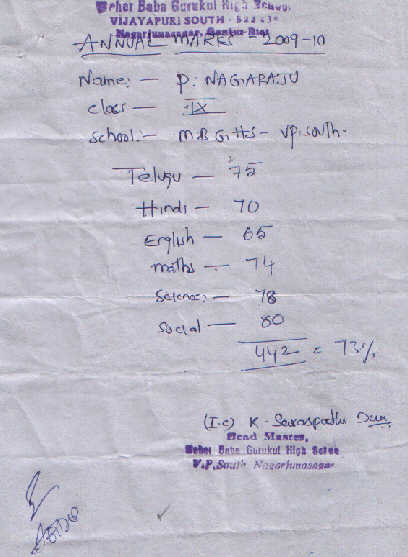 Meher Baba Gurukul High School
VIJAYAPURI SOUTH -
Nagarjunasagar, Guntur Dist
ANNUAL MARKS - 2009-10
Name: - P. NAGARAJU
class - IX
School:- M.B.G.H.S - V.P. South.
Telugu - 75
Hindi - 70
English - 65
maths - 74
Science: - 78
Social - 80
442 = 73%
(I.c) K.
Head Master,
Meher Baba Gurukul High School
V.P. South Nagarjunasagar